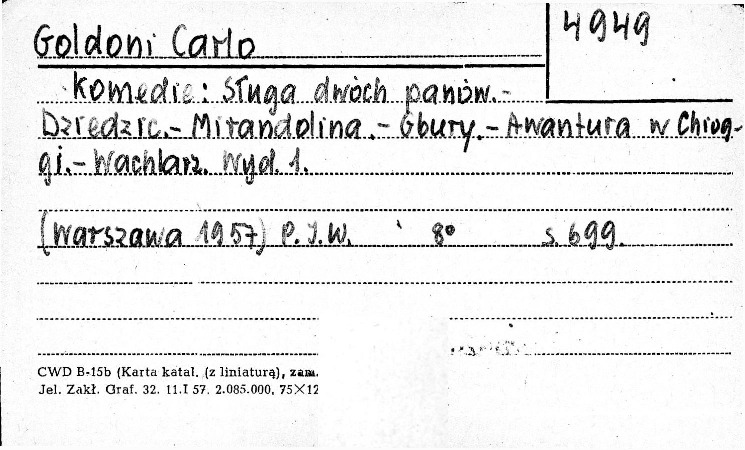 4949
Goldoni Carlo
Komedie: Sługa dwóch panów.-
Dziedzic.- Mirandolina.- Gbury.- Awantura w Chiog-
gi.- Wachlarz. Wyd. 1.
(Warszawa 1957) P.I.W. 8° s. 699.
CWD B-15b (Karta katal. (z liniaturą), zam.
Jel. Zakł. Graf. 32. 11.I 57. 2.085.000, 75×12